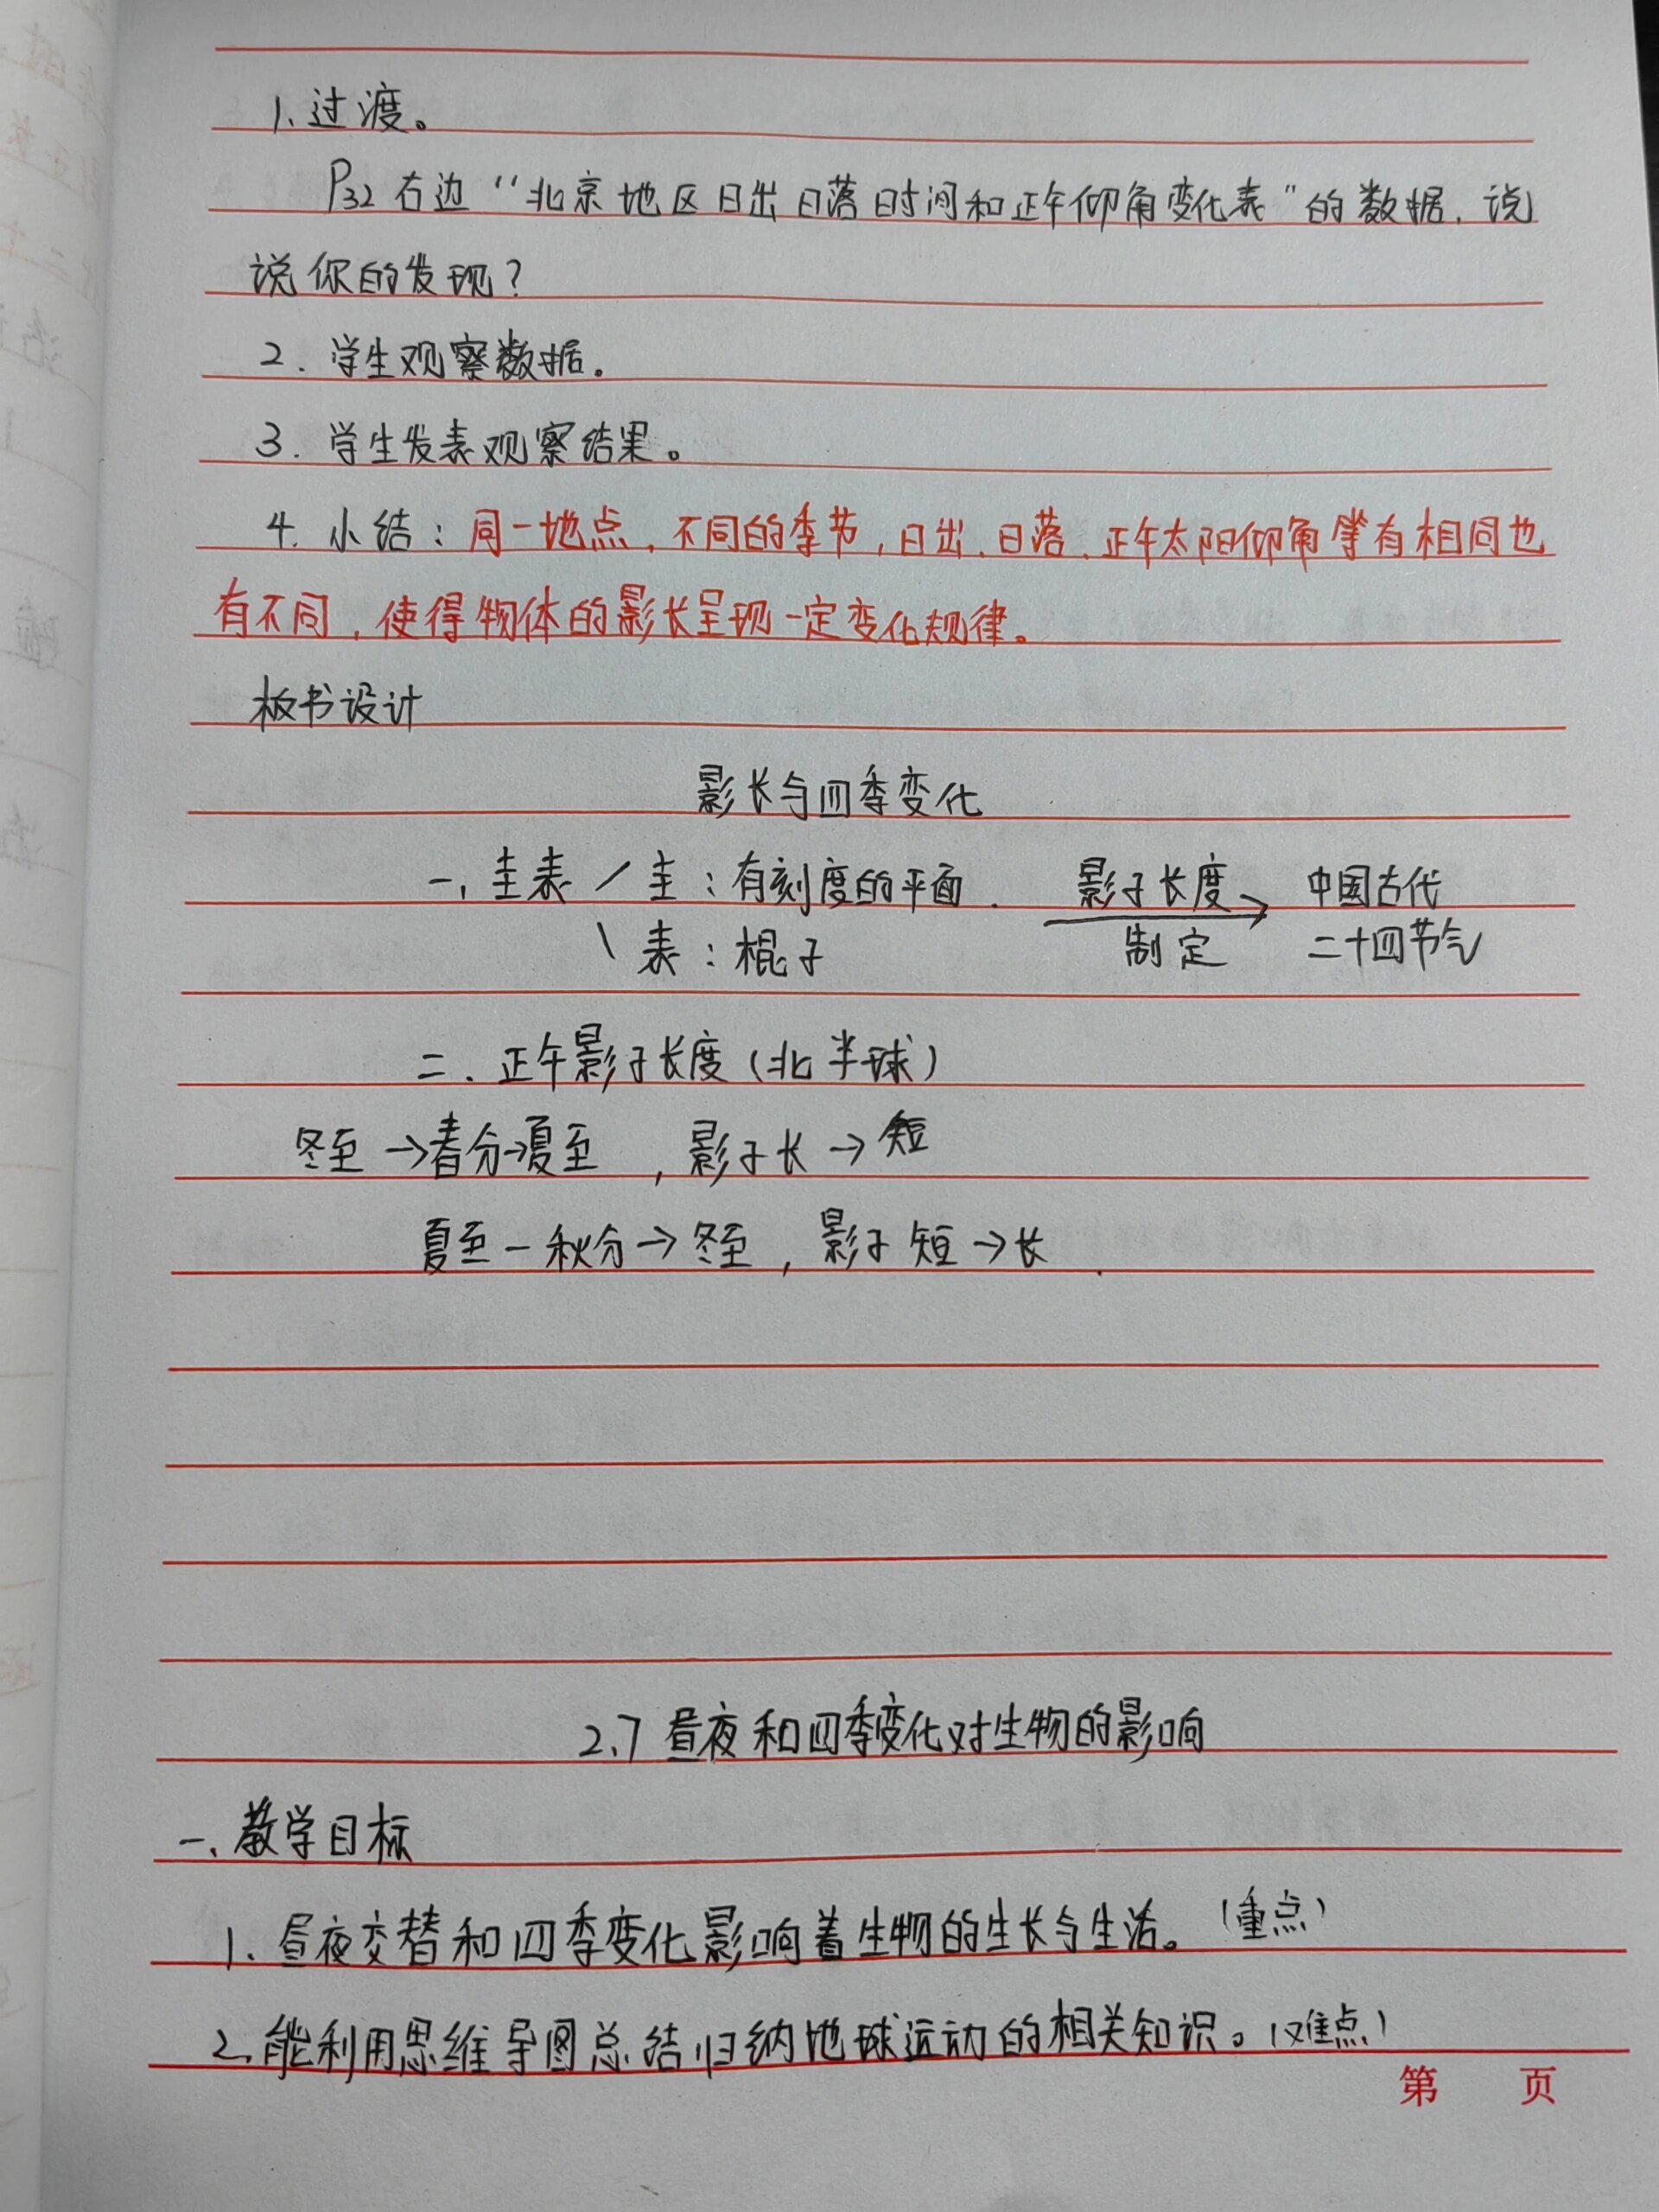 1、过渡。
P32右边“北京地区日出日落时间和正午仰角变化表”的数据，说
说你的发现？
2. 学生观察数据。
3. 学生发表观察结果。
4. 小结：同一地点，不同的季节，日出、日落、正午太阳仰角等有相同也
有不同，使得物体的影长呈现一定变化规律。
板书设计
影长与四季变化
一、圭表 / 圭：有刻度的平面. 影子长度 → 中国古代
\ 表：棍子 制定 二十四节气
二、正午影子长度(北半球)
冬至→春分→夏至，影子长→短
夏至—秋分→冬至，影子短→长
2.7 昼夜和四季变化对生物的影响
一、教学目标
1、昼夜交替和四季变化影响着生物的生长与生活。(重点)
2、能利用思维导图总结归纳地球运动的相关知识。(难点)
第 页